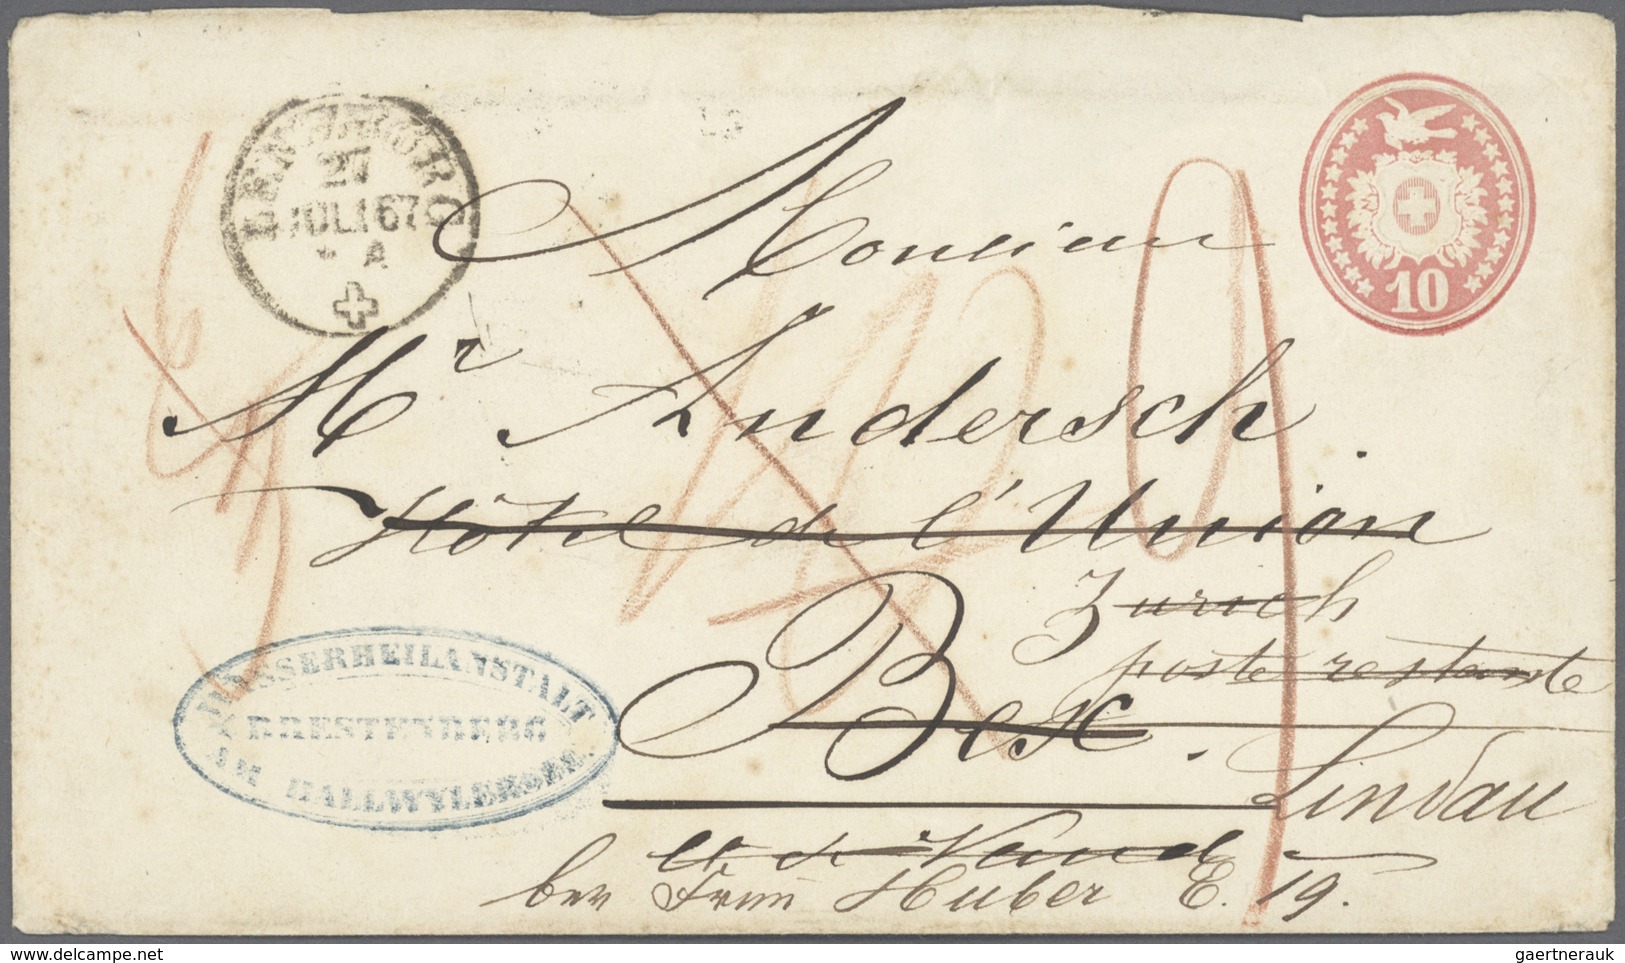 LENZBURG
27
JULI 67
A
10
Monsieur
Mr Andersch
Hôtel de l'Union
Zurich
poste restante
Bex.
Lindau
ct de Vaud
bey Frau Huber E. 19.
WASSERHEILANSTALT
BRESTENBERG
AM HALLWYLERSEE
delcampe.net
gaertnerauk